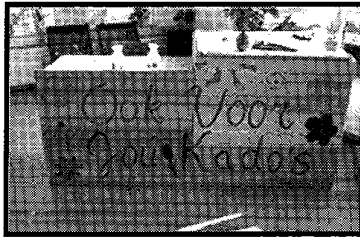 Ook Voor
Jou Kado's